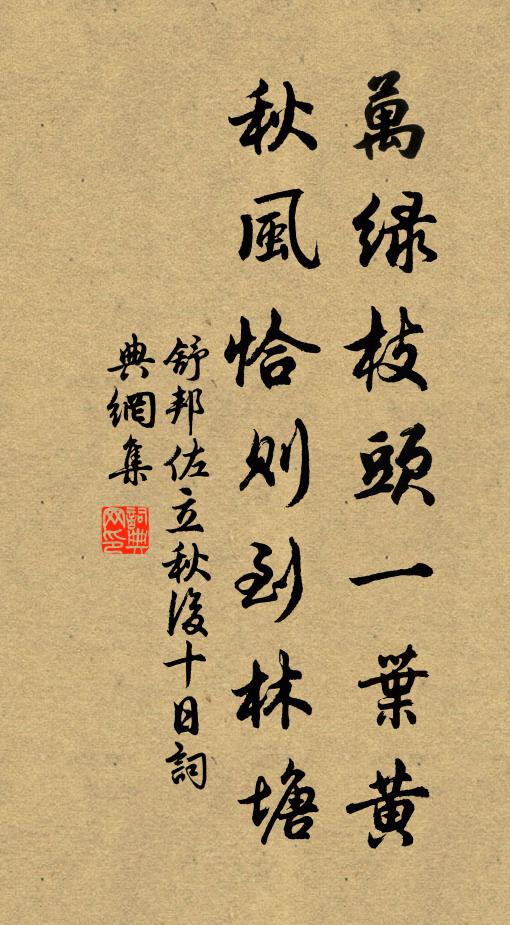 萬綠枝頭一葉黃
秋風恰則到林塘
舒邦佐立秋後十日詞
典網集
詞典网印